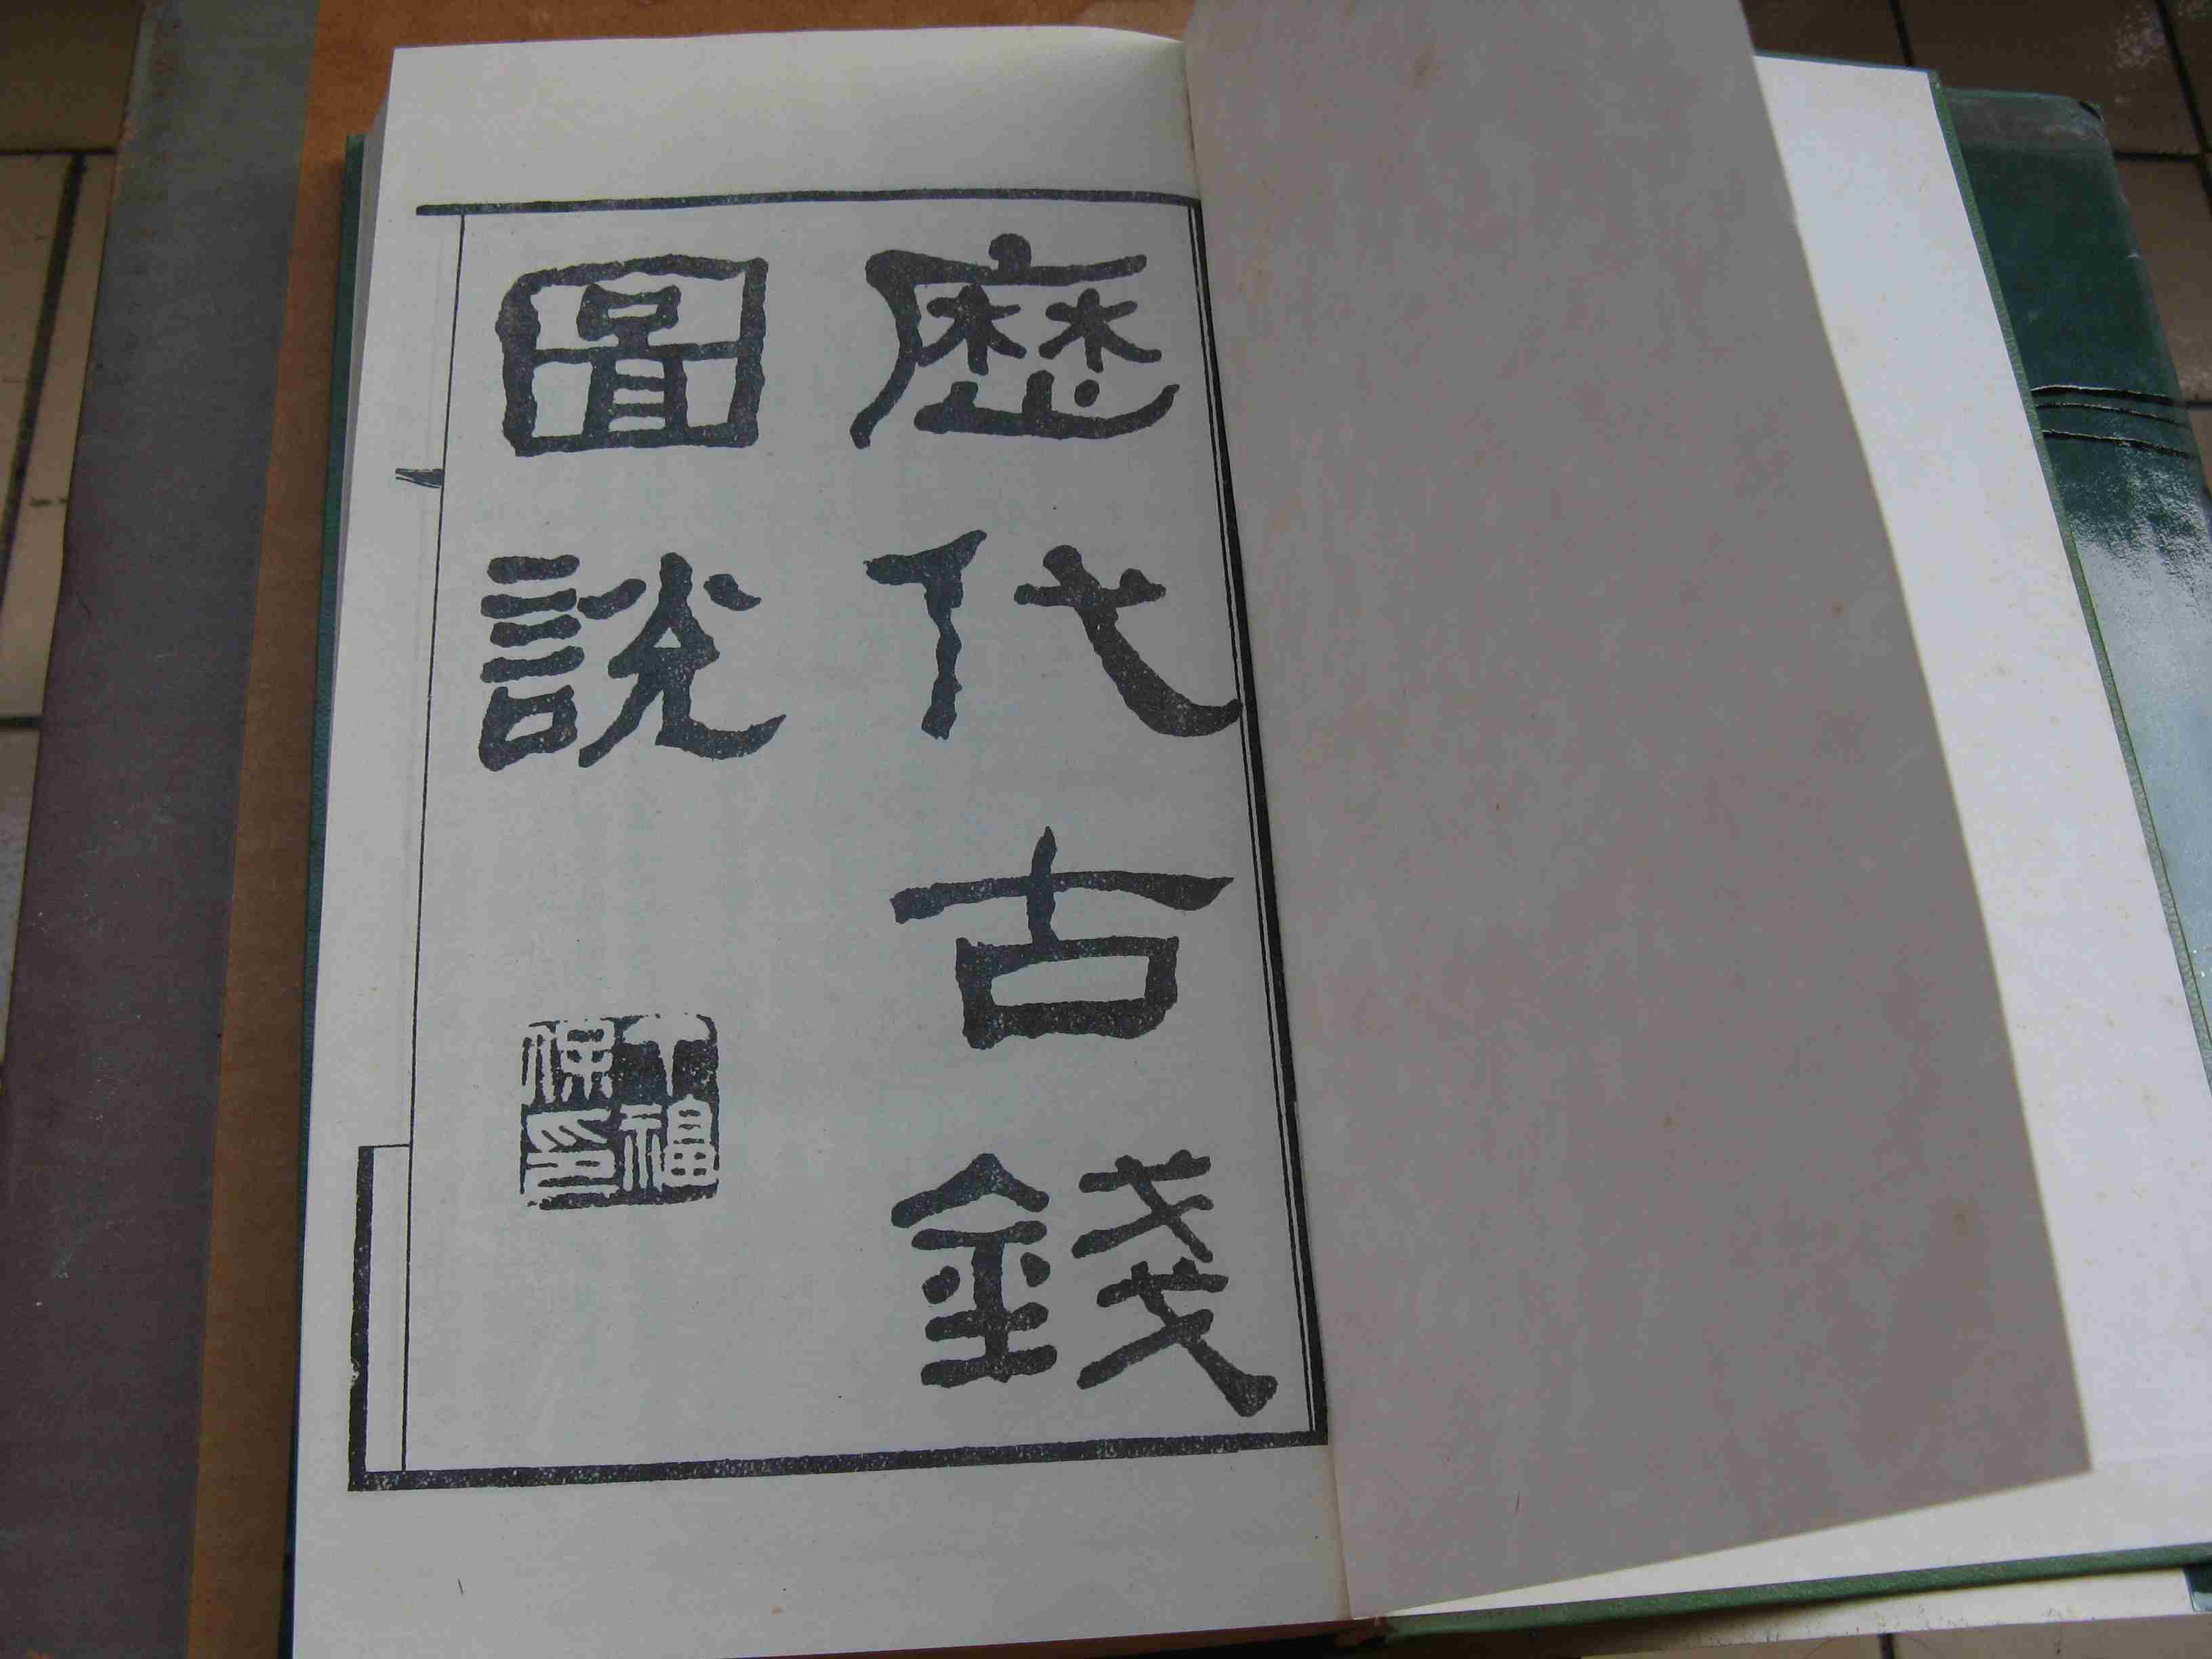 歷代古錢
圖說
丁福
保印